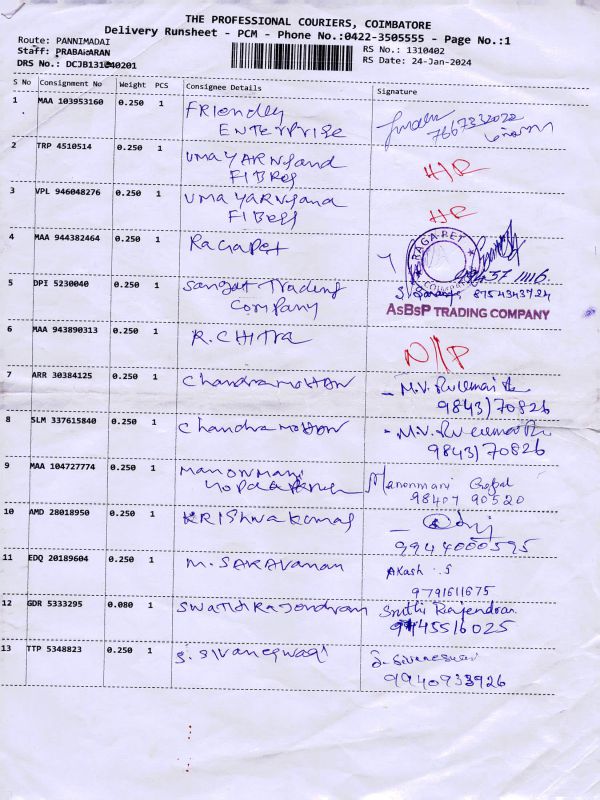 THE PROFESSIONAL COURIERS, COIMBATORE
Delivery Runsheet - PCM - Phone No.:0422-3505555 - Page No.:1
Route: PANNIMADAI
RS No.: 1310402
Staff: PRABAKARAN
RS Date: 24-Jan-2024
DRS No.: DCJB131040201
S No Consignment No Weight PCS Consignee Details Signature
1 MAA 103953160 0.250 1 Friendly
Enterprise
7667332022
2 TRP 4510514 0.250 1 UMA YARNS and H/R
FIBRES
3 VPL 946048276 0.250 1 UMA YARNS and HR
FIBRES
4 MAA 944382464 0.250 1 RagaPet
RAGA-PET
5 DPI 5230040 0.250 1 Sangat Trading 8754343724
Company
AsBsP TRADING COMPANY
6 MAA 943890313 0.250 1 R. CHITRA N/P
7 ARR 30384125 0.250 1 Chandramohon - M.V.
9843170826
8 SLM 337615840 0.250 1 Chandramohon - M.V.
9843170826
9 MAA 104727774 0.250 1 Manonmani Manonmani Gopal
98407 90520
10 AMD 28018950 0.250 1 KRISHNA Kumar
9944000595
11 EDQ 20189604 0.250 1 M. SARAVANAN Akash . S
9791611675
12 GDR 5333295 0.080 1 Swathi Rajendran Sruthi Rajendran
9445516025
13 TTP 5348823 0.250 1 S. Sivaneswari S. Sivaneswari
9940933926